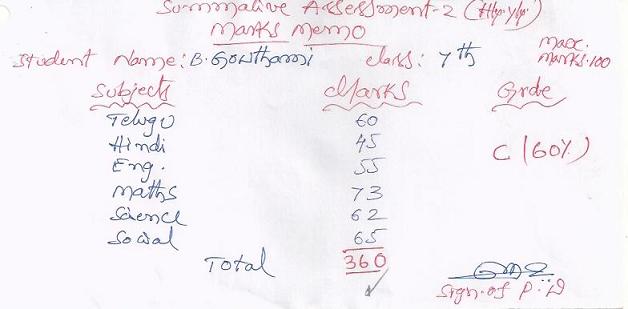 Summative Assessment-2 (Hly.yly.)
Marks Memo
Student Name: B. Gowthami class: 7th Max. Marks.100
Subjects Marks Grde
Telugu 60
Hindi 45
Eng. 55
Maths 73
Science 62
Social 65
C (60%)
Total 360
Sign.of P.:D